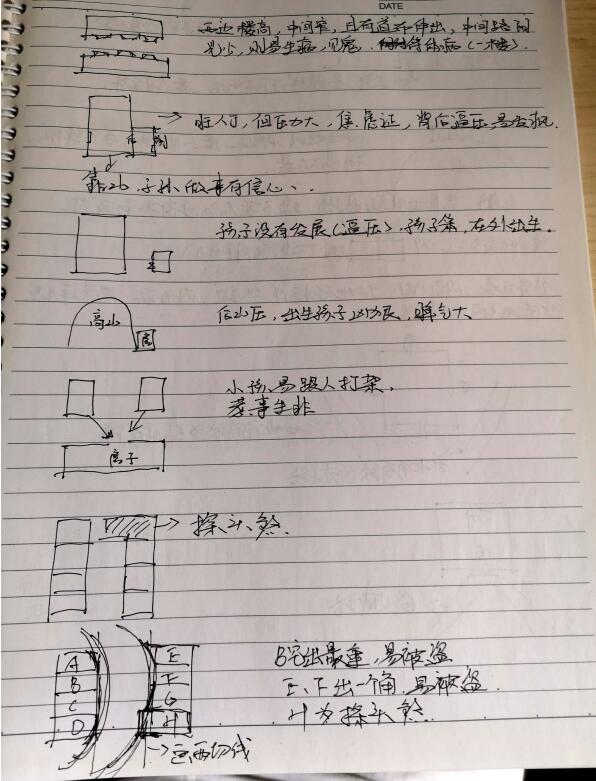 DATE
两边楼高，中间窄，且有道路伸出，中间路阳
光少，则易生病，见鬼． (一楼)．
旺人丁，但压力大，焦虑证，背后逼压，易
靠山．子孙做事有信心、．
孩子没有发展(逼压)．孩子笨，在外出生．
高山
房
后山压，出生孩子 ，脾气大
小孩易跟人打架，
惹事生非
房子
→ 探头煞．
A
B
C
D
E
F
G
H
B宅出最重，易被盗
E、F出一个角．易被盗．
H为探头煞．
→